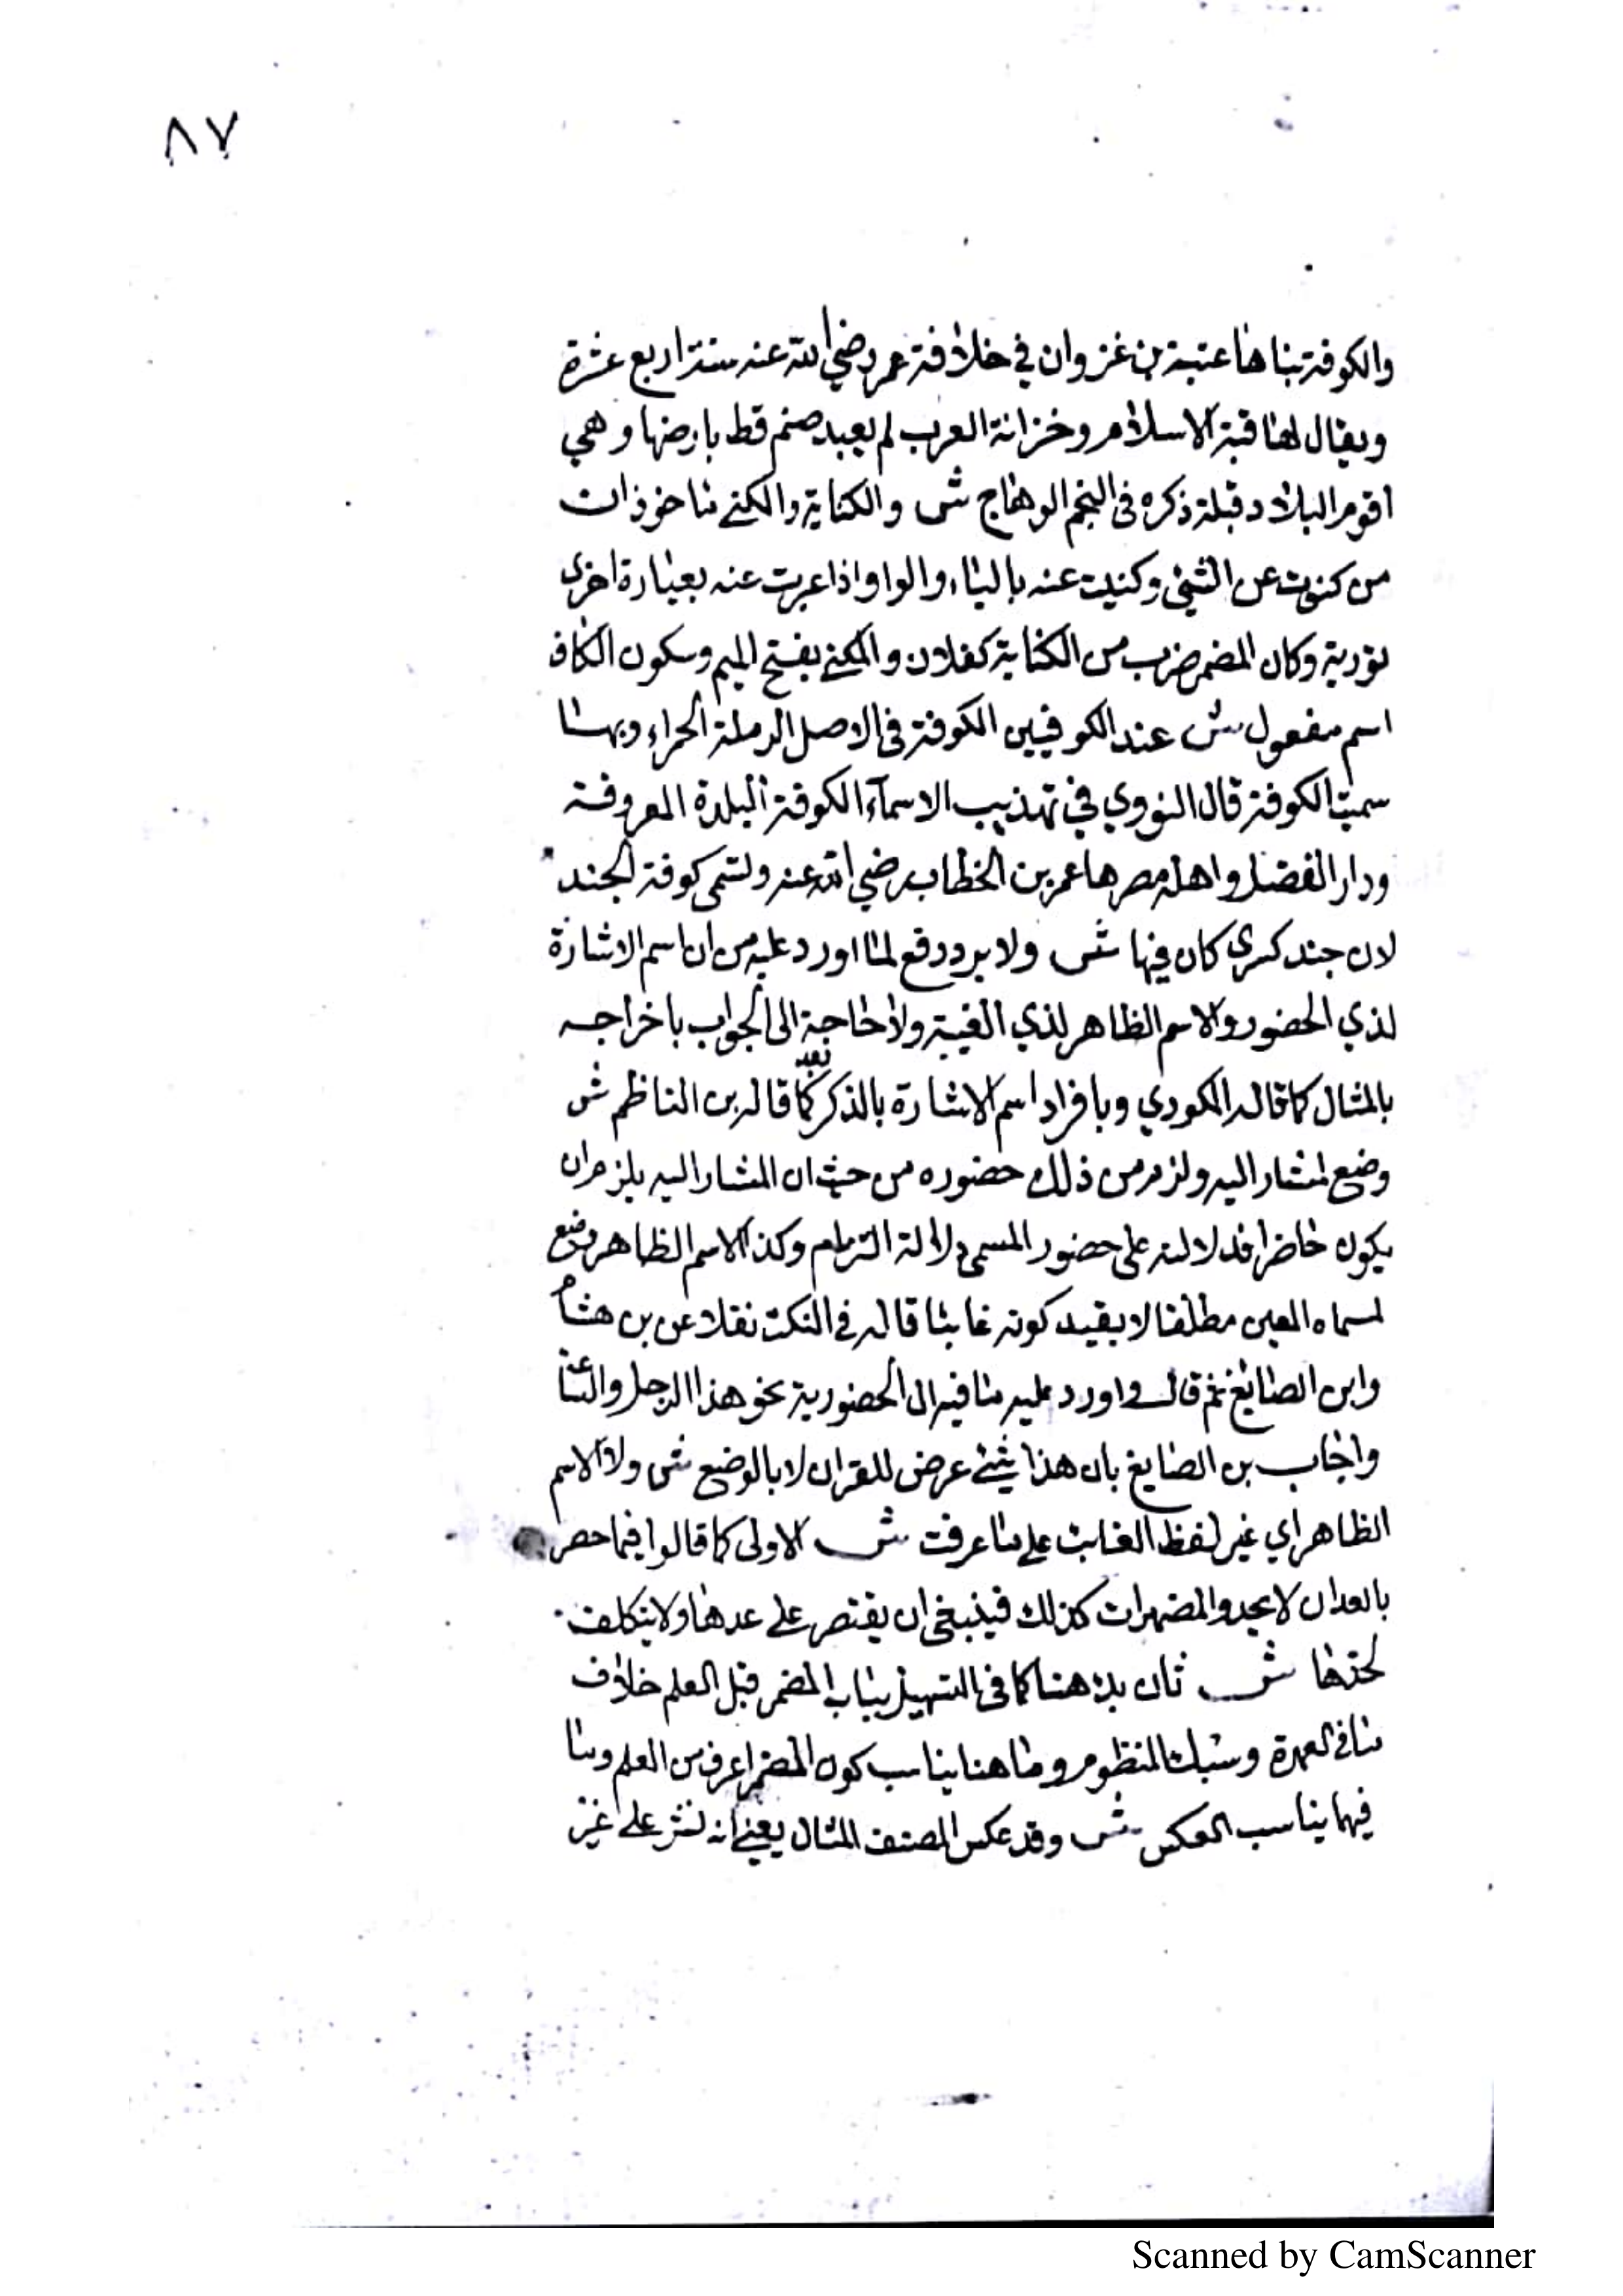 ٨٧
والكوفة بناها عتبة بن غزوان في خلافة عمر رضي الله عنه سنة اربع عشرة
ويقال لها قبة الاسلام وخزانة العرب لم يعبد صنم قط بارضها وهي
اقوم البلاد قبلة ذكره في النجم الوهاج ش والكناية والمكنى ماخوذات
من كنوت عن الشيئ وكنيت عنه بالياء والواو اذا عبرت عنه بعبارة اخرى
تورية وكان المضمر ضرب من الكناية كفلان والمكنى بفتح الميم وسكون الكاف
اسم مفعول ش عند الكوفيين الكوفة في الاصل الرملة الحمراء وبها
سميت الكوفة قال النووي في تهذيب الاسمآء الكوفة البلدة المعروفة
ودار الفضل واهله مصرها عمر بن الخطاب رضي الله عنه وتسمى كوفة الجند
لان جند كسرى كان فيها ش ولا يرد دفع لما اورد عليه من ان اسم الاشارة
لذي الحضور والاسم الظاهر لذي الغيبة ولا حاجة الى الجواب باخراجه
بالمثال كما قاله المكودي وبافراد اسم الاشارة بالذكر بعد كما قاله بن الناظم ش
وضع لمشار اليه ولزم من ذلك حضوره من حيث ان المشار اليه يلزم ان
يكون حاضرا فدلالته على حضور المسمى دلالة التزام وكذا الاسم الظاهر وضع
لمسماه المعين مطلقا لا بقيد كونه غائبا قاله في النكت نقلا عن بن هشام
وابن الصايغ ثم قال واورد عليه ما فيه ال الحضورية نحو هذا الرجل والساعة
واجاب بن الصايغ بان هذا شيئ عرض للقران لا بالوضع ش ولا الاسم
الظاهر اي غير لفظ الغائب على ما عرفت ش الاولى كما قالوا فيما حصر
بالعد ان لا يحد والمضمرات كذلك فينبغى ان يقتصر على عدها ولا يتكلف
لحدها ش ثان بدا هنا كما في التسهيل بباب المضمر قبل العلم خلاف
ما في العمدة وسبك المنظوم وما هنا يناسب كون المضمر اعرف من العلم وما
فيهما يناسب العكس ش وقد عكس المصنف المثال يعني انه نشر على غير
Scanned by CamScanner